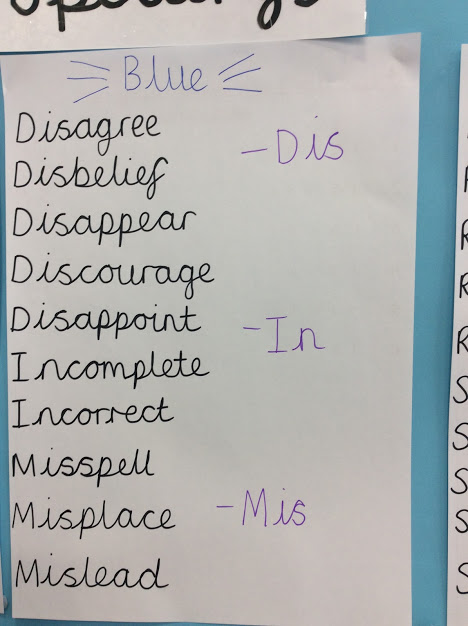 Blue
Disagree
-Dis
Disbelief
Disappear
Discourage
Disappoint
-In
Incomplete
Incorrect
Misspell
Misplace
-Mis
Mislead